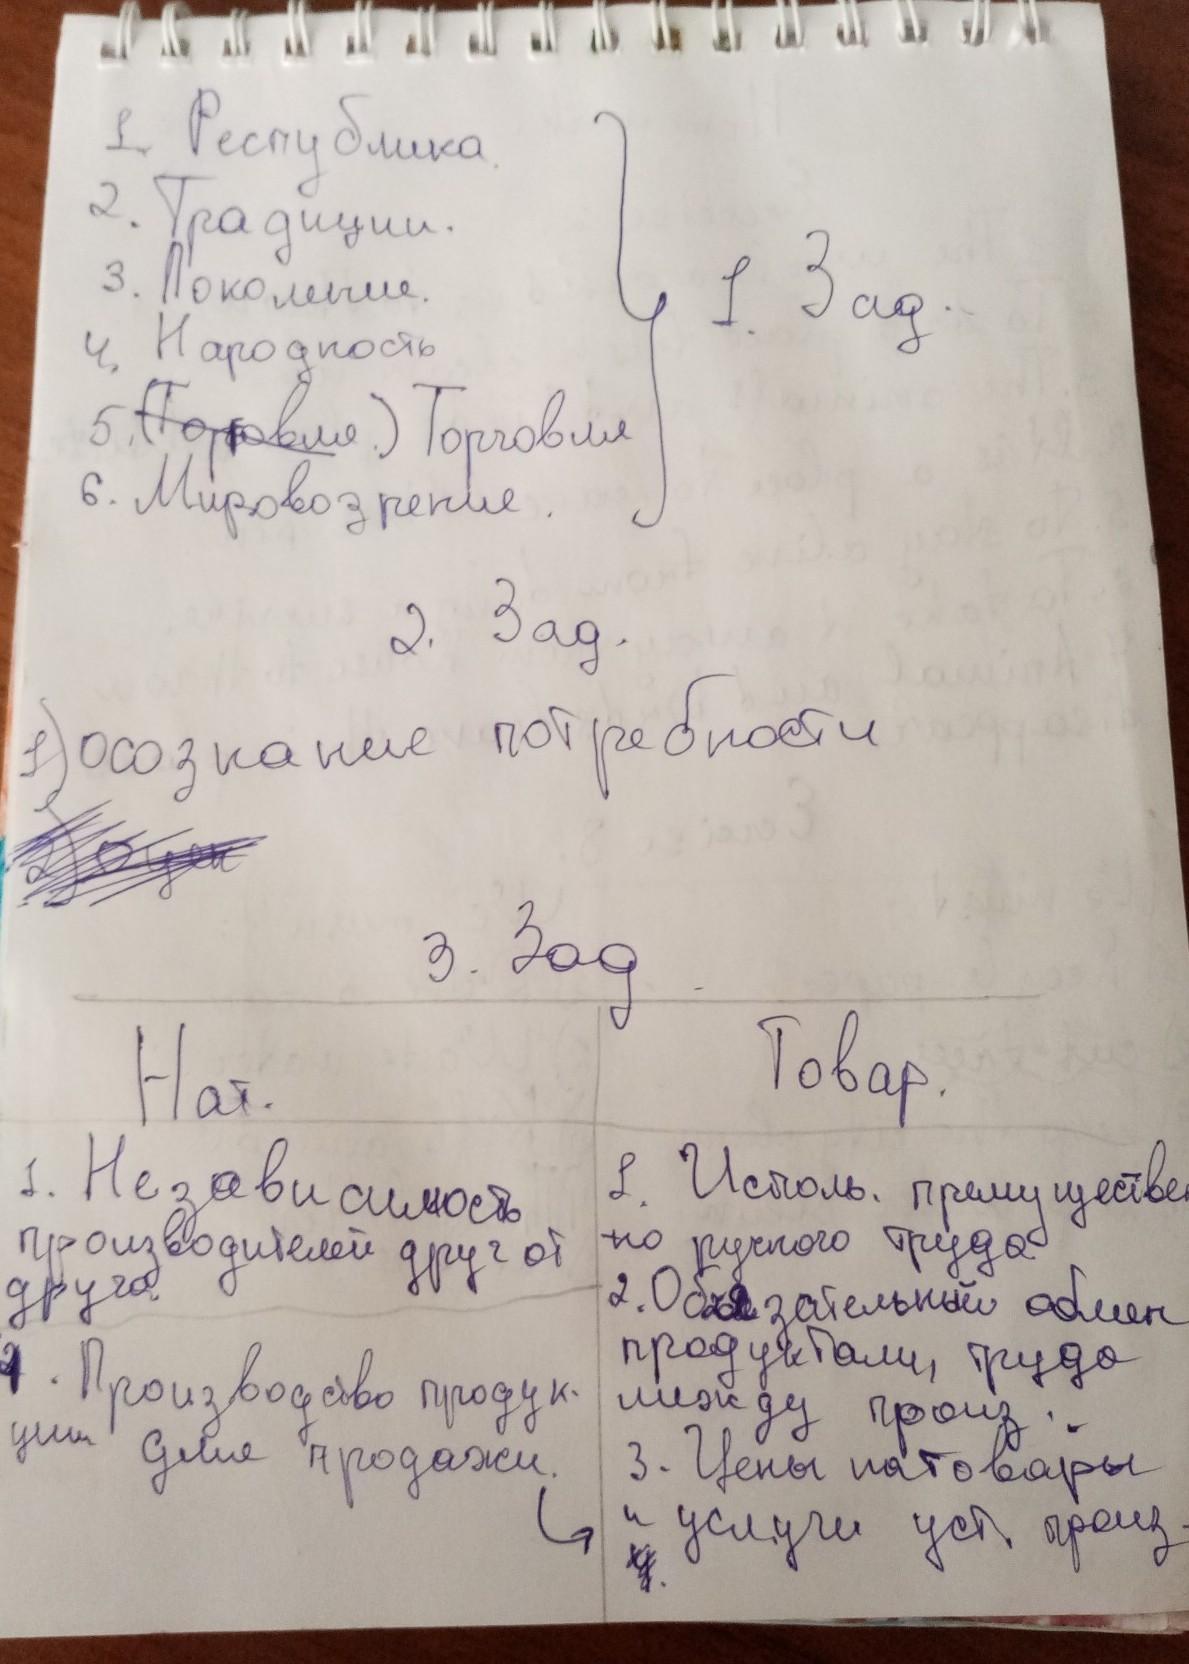 1. Республика.
2. Традиции.
3. Поколение.
4. Народность
5. (Торовля.) Торговля
6. Мировозрение.
1. Зад.
2. Зад.
1) осознание потребности
3. Зад
Нат.
Товар.
1. Независимость
производителей друг от
друга.
1. Производство продук-
ции для продажи.
1. Исполь. преимуществен
но ручного труда
2. Обязательный обмен
продуктами, труда
между произ.
3. Цены на товары
и услуги уст. произ.